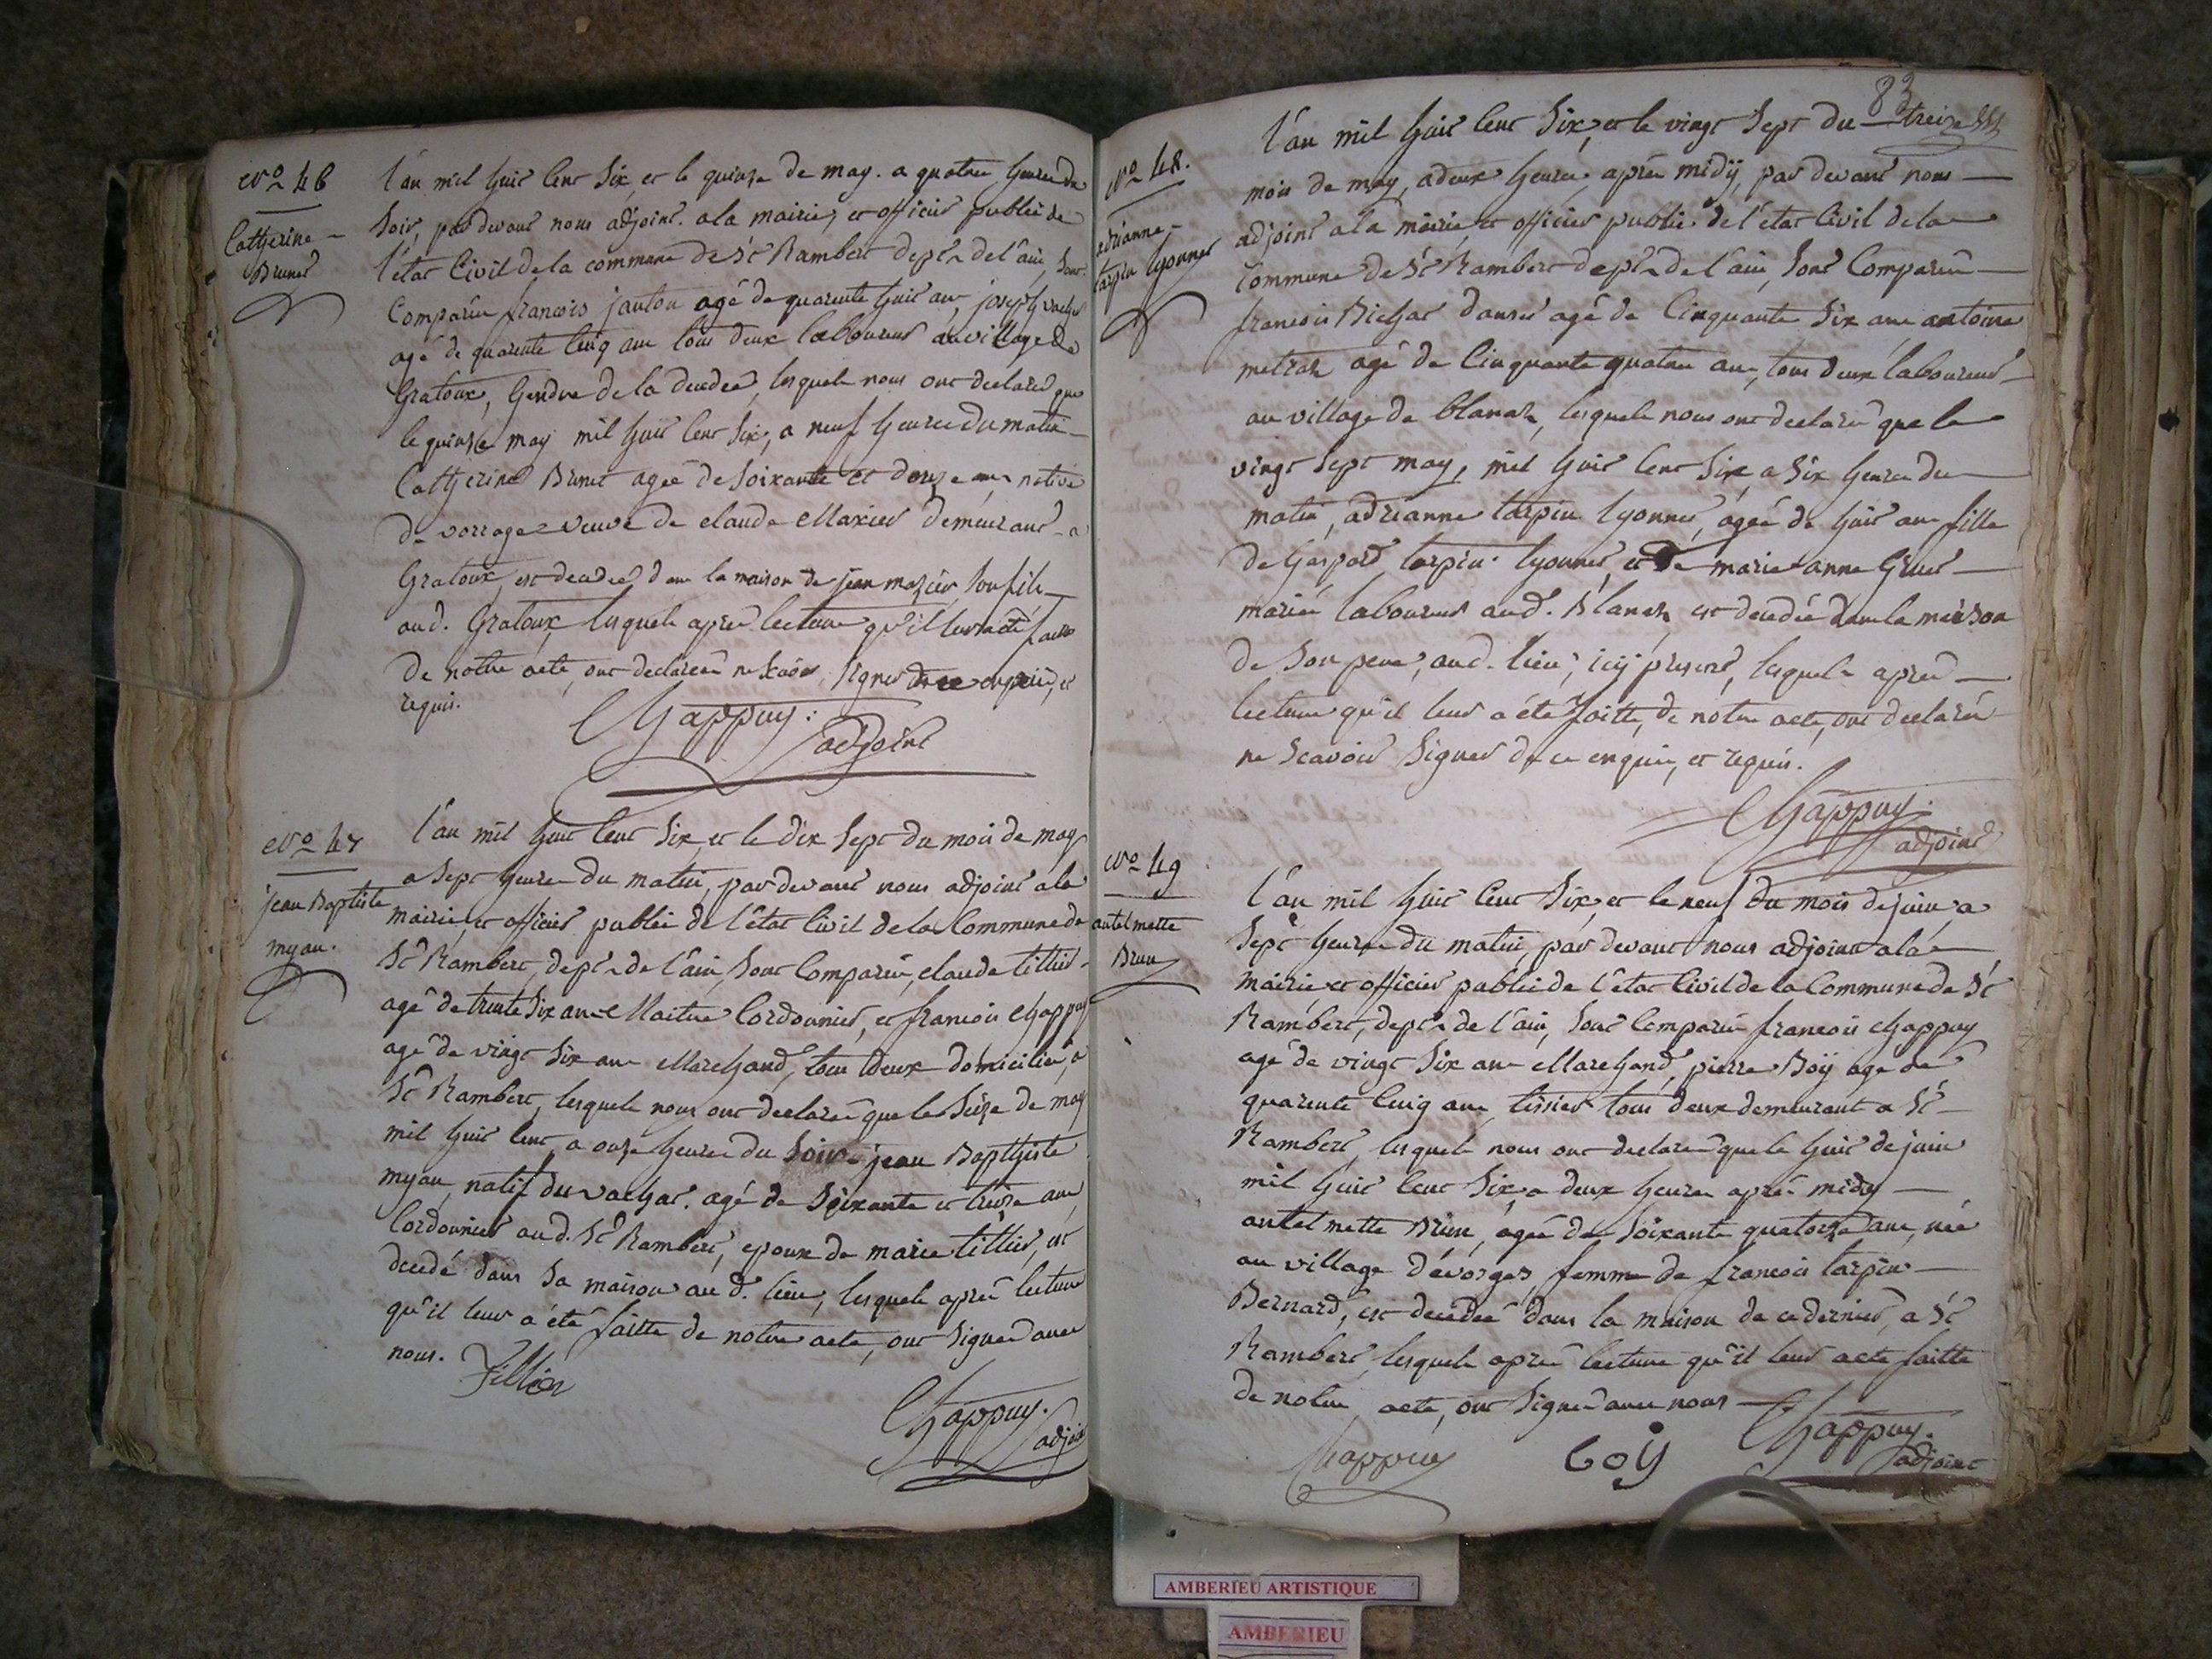 N.o 46
Catherine
Brunet
l'an mil huit cent six, et le quinze de may. a quatre heures du
soir, par devant nous adjoint. a la mairie, et officier public de
l'état civil de la commune de St Rambert dept. de l'ain, sont
comparûs francois janton agé de quarente huit ans, joseph
agé de quarente cinq ans tous deux laboureurs au village de
Gratoux, Gendre de la decedee, lesquels nous ont declarés que
le quinze may mil huit cent six, a neuf heures du matin
Catherine Brunet agée de soixante et douze ans native
de vorrages veuve de claude Mazier demeurant a
Gratoux, est decedeé dans la maison de jean mazier son fils
aud. Gratoux, lesquels aprés lecture qu'il leur a été faitte
de notre acte, ont declareés ne scavoir signer de ce enquis, et
requis.
Chappuy.
adjoint
N.o 47
jean Baptiste
myan.
l'an mil huit cent six, et le dix sept du mois de may
a sept heures du matin, par devant nous adjoint a la
mairie, et officier public de l'état civil de la Commune de
St Rambert, dept. de l'ain, sont comparûs, claude tillier
agé de trente six ans Maitre Cordonnier, et francois Chappuy
agé de vingt six ans Marchand, tous deux domiciliés a
St Rambert, lesquels nous ont declarés que le seize de may
mil huit cent, a onze heures du soir jean Bapthiste
myan, natif du vachat. agé de soixante et treize ans
Cordonnier aud. St Rambert, epoux de marie tillier, est
decedé dans sa maison aud. lieu, lesquels aprés lecture
qu'il leur a été faitte de notre acte, ont signés avec
nous.
Tillier
Chappuy.
adjoint
83
treize
N.o 48.
adrianne
tarpin lyonnet
l'an mil huit cent six, et le vingt sept du
mois de may, a deux heures, aprés midy, par devant nous
adjoint a la mairie, et officier public de l'état civil de la
commune de St Rambert dept. de l'ain, sont comparûs
francois Bichat agé de Cinquante six ans antoine
metraz agé de Cinquante quatre ans, tous deux laboureurs
au village de blanaz, lesquels nous ont declarés que le
vingt sept may, mil huit cent six, a six heures du
matin, adrianne tarpin lyonnet, agée de huit ans fille
de Gaspard tarpin lyonnet et de marie anne
mariés laboureurs aud. Blanaz est decedée dans la maison
de son pere, aud. lieu, icy present, lesquels aprés
lecture qu'il leur a été faitte, de notre acte, ont declarés
ne scavoir signer de ce enquis, et requis.
Chappuy.
adjoint
N.o 49
antelmette
Brun
l'an mil huit cent six, et le neuf du mois de juin, a
sept heures du matin, par devant nous adjoint a la
mairie, et officier public de l'état civil de la Commune de St
Rambert, dept. de l'ain, sont comparûs francois Chappuy
agé de vingt six ans Marchand, pierre Böy agé de
quarente cinq ans, tissier tous deux demeurant a St
Rambert, lesquels nous ont declarés que le huit de juin
mil huit cent six, a deux heures aprés midy
antelmette Brun, agée de soixante quatorze ans, née
au village d'évorges, femme de francois tarpin
Bernard, est decedeé dans la maison de ce dernier, a St
Rambert, lesquels aprés lecture qu'il leur a eté faitte
de notre acte, ont signés avec nous
Chappuy
Boy
Chappuy.
adjoint
AMBERIEU ARTISTIQUE
AMBERIEU